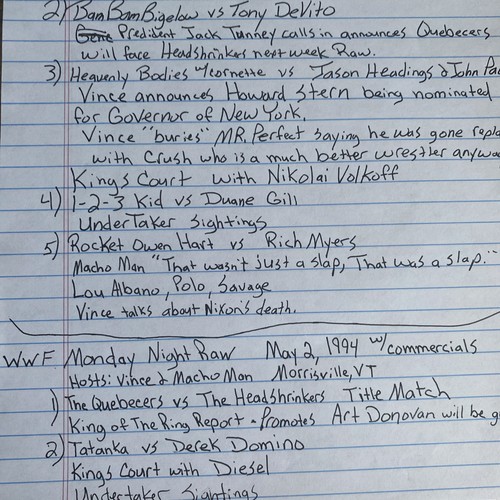 2) Bam Bam Bigelow vs Tony DeVito
Gene President Jack Tunney calls in announces Quebecers
will face Headshrinkers next week Raw.
3) Heavenly Bodies w/cornette vs Jason Headings & John
Vince announces Howard Stern being nominated
for Governor of New York.
Vince "buries" MR. Perfect saying he was gone
with Crush who is a much better wrestler
Kings Court with Nikolai Volkoff
4) 1-2-3 Kid vs Duane Gill
UnderTaker Sightings
5) Rocket Owen Hart vs Rich Myers
Macho Man "That wasn't just a slap, That was a slap."
Lou Albano, Polo, Savage
Vince talks about Nixon's death.
WWF Monday Night Raw May 2, 1994 w/commercials
Hosts: Vince & Macho Man Morrisville, VT
1) The Quebecers vs The Headshrinkers Title Match
King of The Ring Report - Promotes Art Donovan will be
2) Tatanka vs Derek Domino
Kings Court with Diesel
Undertaker Sightings